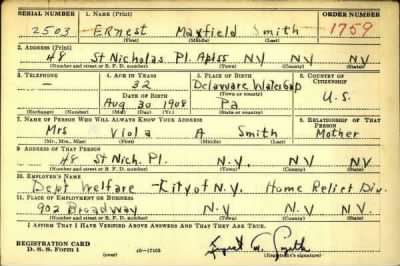 SERIAL NUMBER 1. NAME (Print) ORDER NUMBER
2503 ERnest Maxfield Smith 1759
(First) (Middle) (Last)
2. ADDRESS (Print)
48 St Nicholas Pl. Apt 55 N.Y. N.Y. N.Y.
(Number and street or R. F. D. number) (Town) (County) (State)
3. TELEPHONE 4. AGE IN YEARS 5. PLACE OF BIRTH 6. COUNTRY OF CITIZENSHIP
— 32 Delaware Watergap
DATE OF BIRTH (Town or county) U.S.
Aug 30 1908 Pa
(Exchange) (Number) (Mo.) (Day) (Yr.) (State or country)
7. NAME OF PERSON WHO WILL ALWAYS KNOW YOUR ADDRESS 8. RELATIONSHIP OF THAT PERSON
Mrs Viola A Smith Mother
(Mr., Mrs., Miss) (First) (Middle) (Last)
9. ADDRESS OF THAT PERSON
48 St Nich. Pl. N.Y. NY NY
(Number and street or R. F. D. number) (Town) (County) (State)
10. EMPLOYER'S NAME
Dept Welfare - City of N.Y. Home Relief Div.
11. PLACE OF EMPLOYMENT OR BUSINESS
902 Broadway N.Y. NY NY.
(Number and street or R. F. D. number) (Town) (County) (State)
I AFFIRM THAT I HAVE VERIFIED ABOVE ANSWERS AND THAT THEY ARE TRUE.
REGISTRATION CARD
D. S. S. Form 1 (over) 16-17105 Ernest M. Smith
(Registrant's signature)